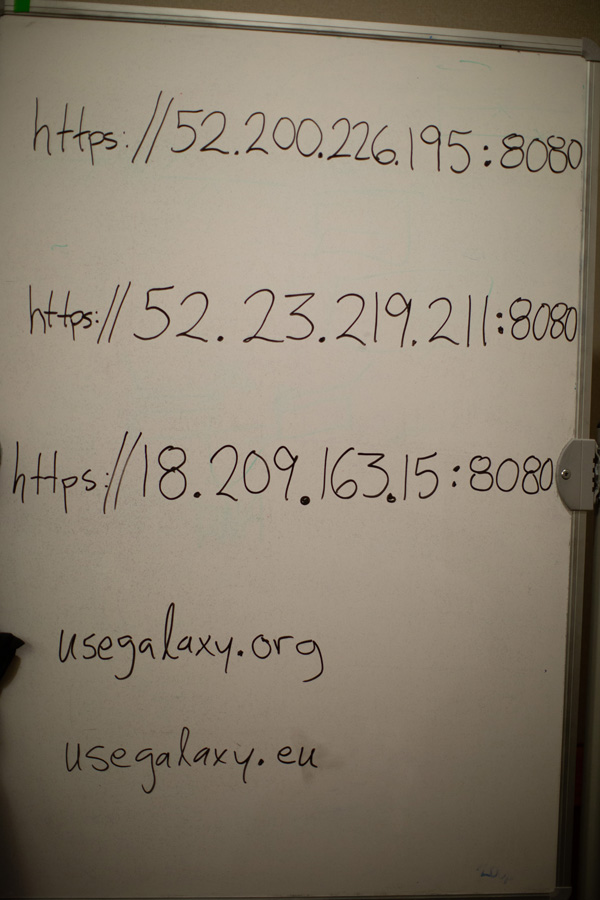 https://52.200.226.195:8080
https://52.23.219.211:8080
https://18.209.163.15:8080
usegalaxy.org
usegalaxy.eu